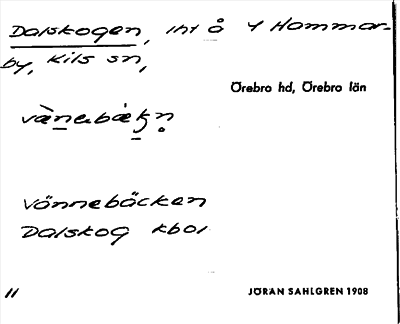 Dalskogen, int å Y Hammar-
by, Kils sn,
Örebro hd, Örebro län
Vännebäcken
Dalskog kboi
11
JÖRAN SAHLGREN 1908